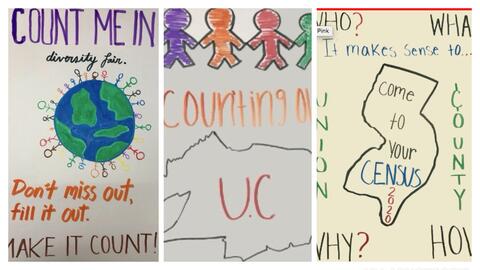 COUNT ME IN
diversity fair.
Don't miss out,
fill it out.
MAKE IT COUNT!
counting on
U.C
WHO?
WHA
Pink
It makes sense to...
UNION
come
to
your
CENSUS
2020
COUNTY
WHY?
HOW